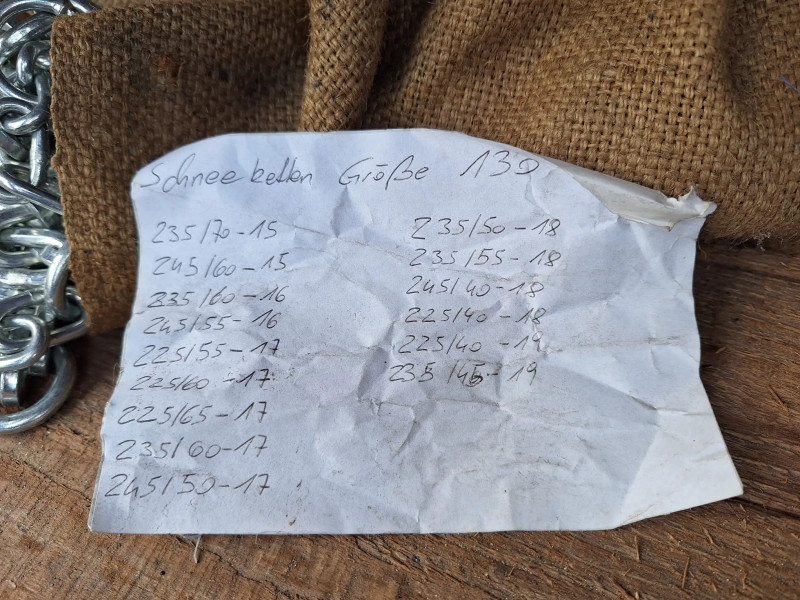 Schneeketten Größe 130
235/70-15
245/60-15
235/60-16
245/55-16
225/55-17
225/60-17
225/65-17
235/60-17
245/50-17
235/50-18
235/55-18
245/40-18
225/40-18
225/40-19
235/45-19